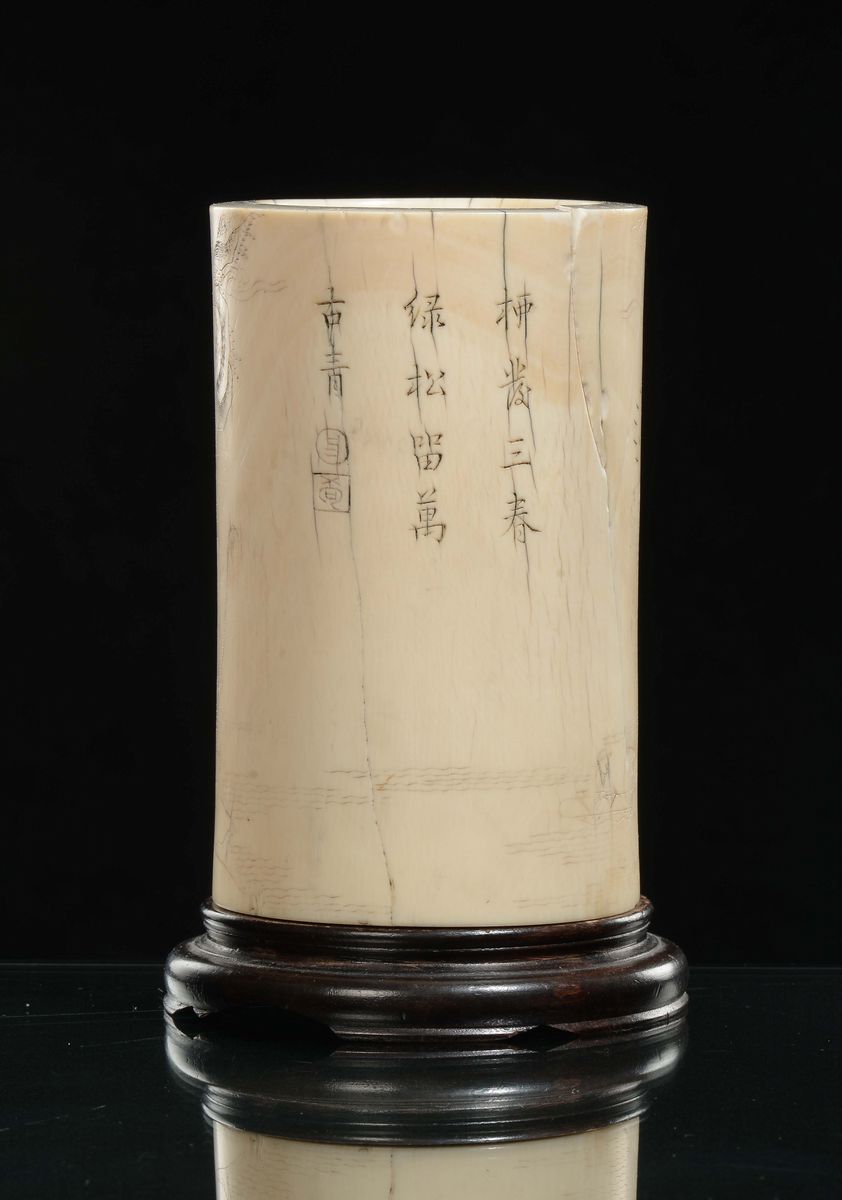 柳發三春
綠松留萬
古青